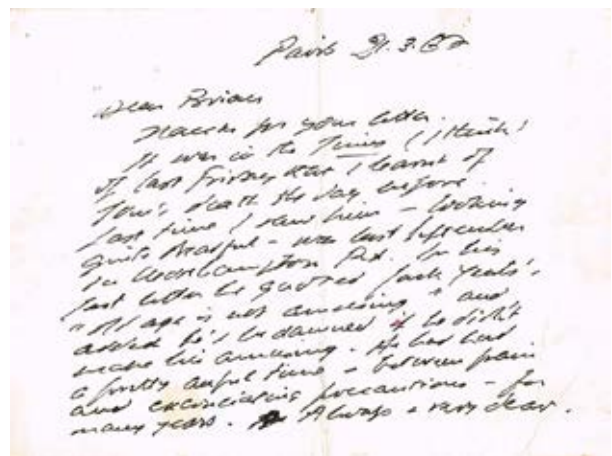 Paris 31.3.67
Dear Brian
Thanks for your letter.
It was in the Times (I think)
of last Friday that I learnt of
Tom's death the day before.
Last time I saw him - looking
quite dreadful - was last September
in Northampton Rd. In his
last letter he quoted Jack Yeats's
"old age is not amusing" and
added he'd be damned if he didn't
make his amusing. He has had
a pretty awful time - between pain
and excruciating precautions - for
many years. Always a very dear.